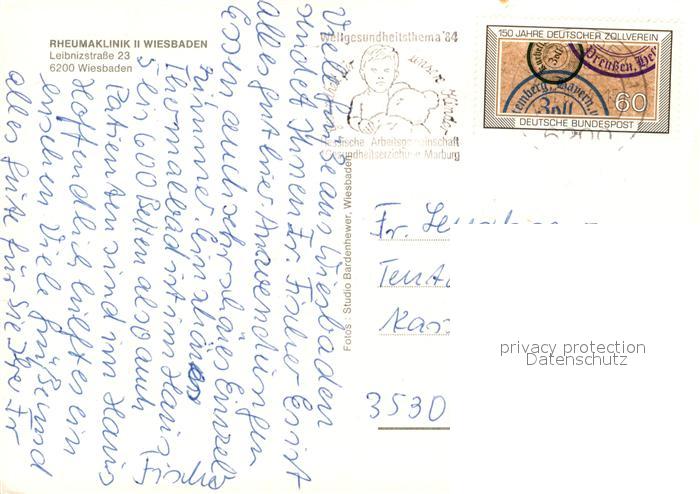 RHEUMAKLINIK II WIESBADEN
Leibnizstraße 23
6200 Wiesbaden
Viele Grüße aus Wiesbaden
sendet Ihnen Fr. Fischer Ernst
alles gut hier Anwendungen
Essen auch sehr schönes Einzel
zimmer. Ein schönes
Thermalbad ist im Haus
Sein 600 Betten also auch
Patienten sind im Haus
Hoffendlich hilft es ein
bischen Viele Grüße und
alles Gute für Sie Ihre Fr
Fischer
Fotos: Studio Bardenhewer, Wiesbaden
Weltgesundheitsthema '84
unsere Kinder
Hessische Arbeitsgemeinschaft
Gesundheitserziehung Marburg
150 JAHRE DEUTSCHER ZOLLVEREIN
Zoll
Preußen, Hes
Bayern, u
Zoll
60
DEUTSCHE BUNDESPOST
Fr.
3530
privacy protection
Datenschutz